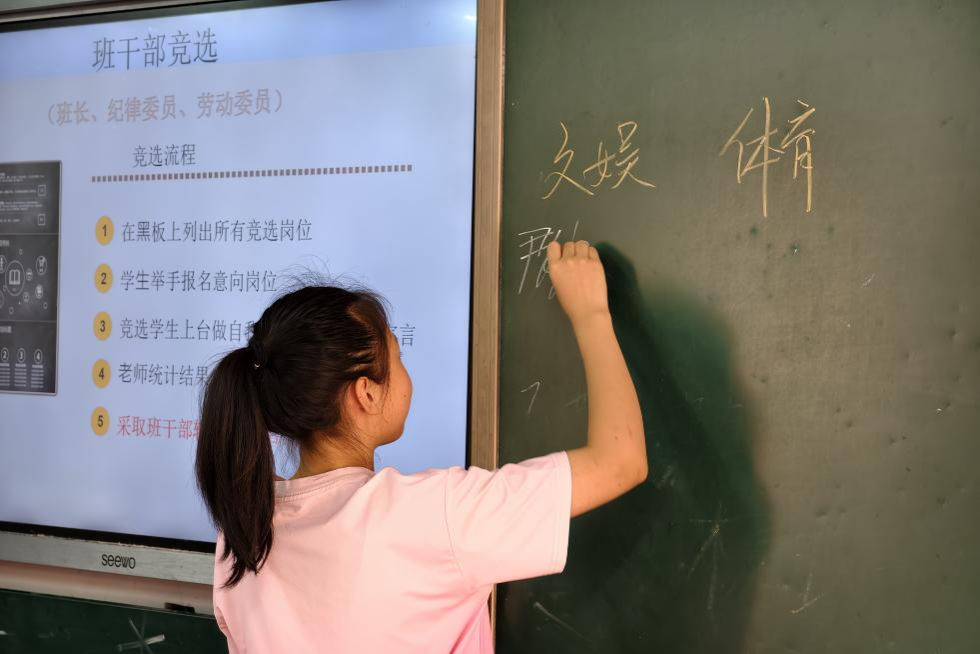 班干部竞选
（班长、纪律委员、劳动委员）
竞选流程
1 在黑板上列出所有竞选岗位
2 学生举手报名意向岗位
3 竞选学生上台做自
言
4 老师统计结果
5 采取班干部
seewo
文娱 体育